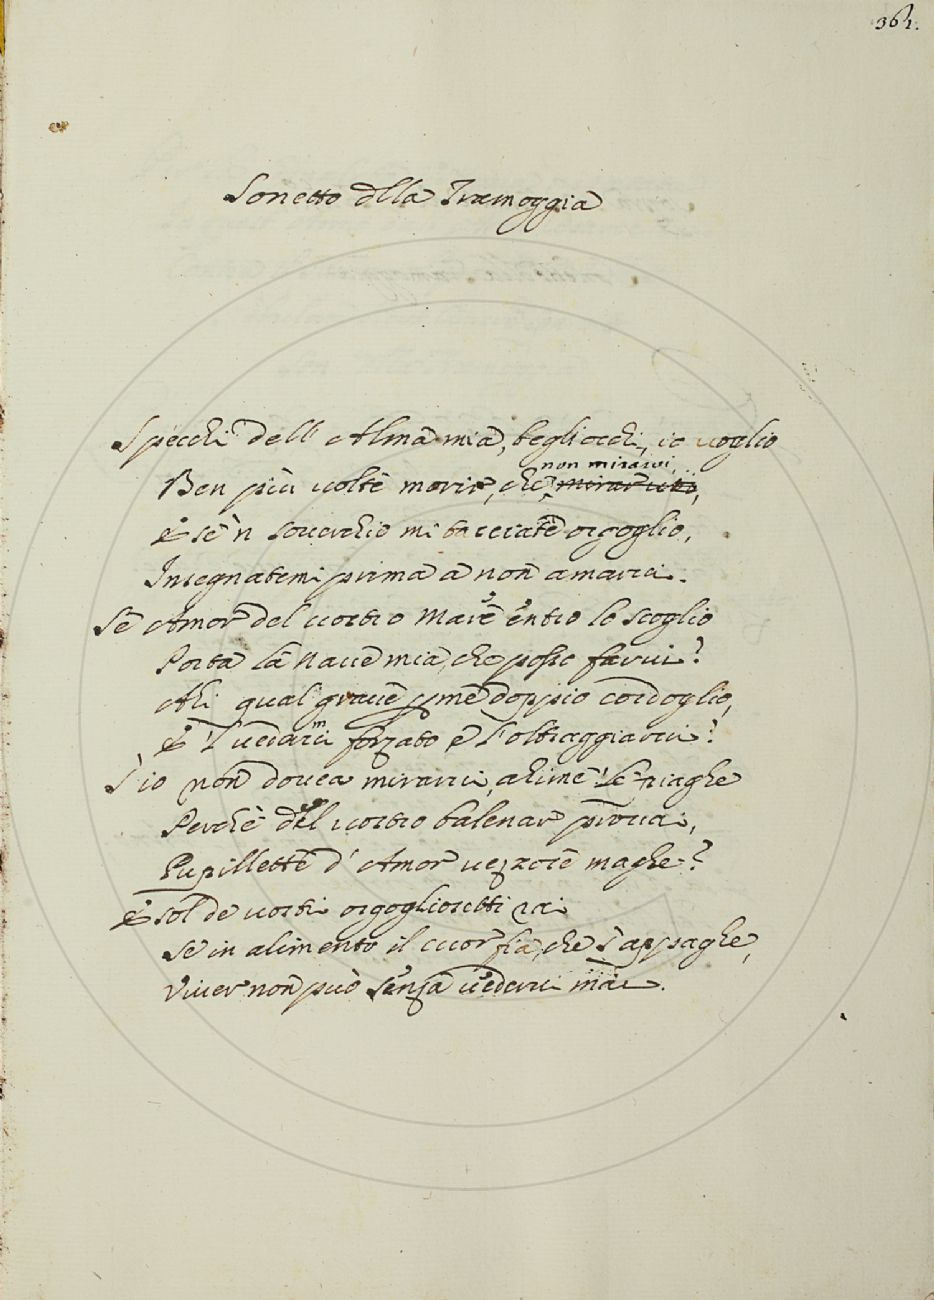 361.
Sonetto della Tramoggia
Specchi dell' Alma mia, begliocchi, io voglio
Ben più volte morir, che non mirarvi,
E se'n soverchio mi baccerate orgoglio,
Insegnatemi prima a non amarvi.
Se Amor del vostro Mare entro lo scoglio
Porta la Nave mia, che posso farvi?
Ahi qual grave p me doppio cordoglio,
E 'l vedervi forzato e l'oltraggiarvi?
S'io non dovea mirarvi, ahime! le piaghe
Perchè del vostro balenar provai,
Pupillette d'Amor vezzose maghe?
E sol de vostri orgogliosetti rai
Se in alimento il cuor fia, che s'appaghe,
Viver non può senza vedervi mai.